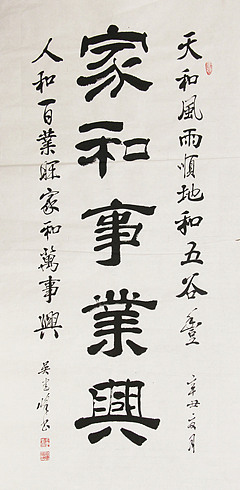 天和風雨順地和五谷豐
辛丑之月
家和事業興
人和百業旺家和萬事興